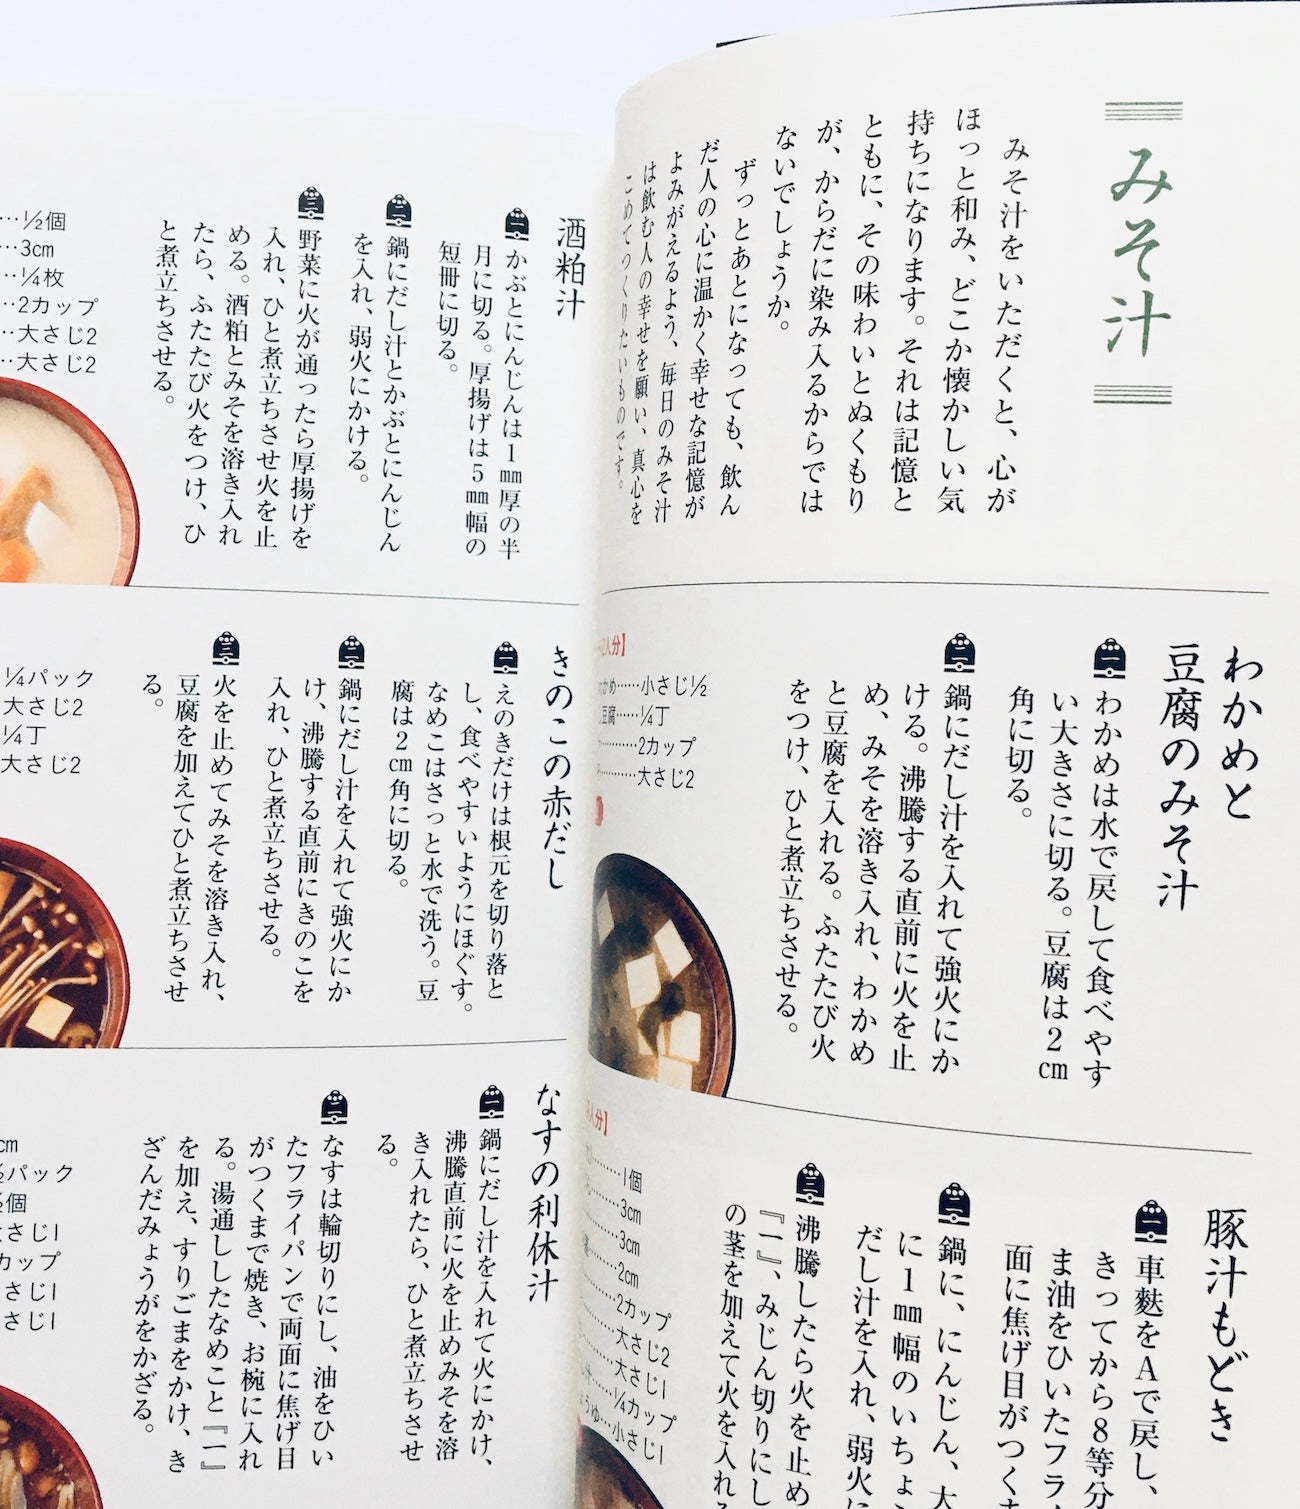 みそ汁
みそ汁をいただくと、心が
ほっと和み、どこか懐かしい気
持ちになります。それは記憶と
ともに、その味わいとぬくもり
が、からだに染み入るからでは
ないでしょうか。
ずっとあとになっても、飲ん
だ人の心に温かく幸せな記憶が
よみがえるよう、毎日のみそ汁
は飲む人の幸せを願い、真心を
こめてつくりたいものです。
わかめと
豆腐のみそ汁
一
わかめは水で戻して食べやす
い大きさに切る。豆腐は2cm
角に切る。
二
鍋にだし汁を入れて強火にか
ける。沸騰する直前に火を止
め、みそを溶き入れ、わかめ
と豆腐を入れる。ふたたび火
をつけ、ひと煮立ちさせる。
2人分】
かめ……小さじ½
豆腐……¼丁
…………2カップ
…………大さじ2
豚汁もどき
一
車麩をAで戻し、
きってから8等分
ま油をひいたフラ
面に焦げ目がつく
二
鍋に、にんじん、大
に1mm幅のいちょ
だし汁を入れ、弱火に
三
沸騰したら火を止め
『一』、みじん切りにし
の茎を加えて火を入れ
人分】
………1個
………3cm
………3cm
………2cm
………2カップ
………大さじ2
………大さじ1
……¼カップ
ょうゆ…小さじ1
酒粕汁
一
かぶとにんじんは1mm厚の半
月に切る。厚揚げは5mm幅の
短冊に切る。
二
鍋にだし汁とかぶとにんじん
を入れ、弱火にかける。
三
野菜に火が通ったら厚揚げを
入れ、ひと煮立ちさせ火を止
める。酒粕とみそを溶き入れ
たら、ふたたび火をつけ、ひ
と煮立ちさせる。
…½個
…3cm
…¼枚
…2カップ
…大さじ2
…大さじ2
きのこの赤だし
一
えのきだけは根元を切り落と
し、食べやすいようにほぐす。
なめこはさっと水で洗う。豆
腐は2cm角に切る。
二
鍋にだし汁を入れて強火にか
け、沸騰する直前にきのこを
入れ、ひと煮立ちさせる。
三
火を止めてみそを溶き入れ、
豆腐を加えてひと煮立ちさせ
る。
¼パック
大さじ2
¼丁
大さじ2
なすの利休汁
一
鍋にだし汁を入れて火にかけ、
沸騰直前に火を止めみそを溶
き入れたら、ひと煮立ちさせ
る。
二
なすは輪切りにし、油をひい
たフライパンで両面に焦げ目
がつくまで焼き、お椀に入れ
る。湯通ししたなめこと『一』
を加え、すりごまをかけ、き
ざんだみょうがをかざる。
cm
½パック
½個
大さじ1
カップ
さじ1
さじ1